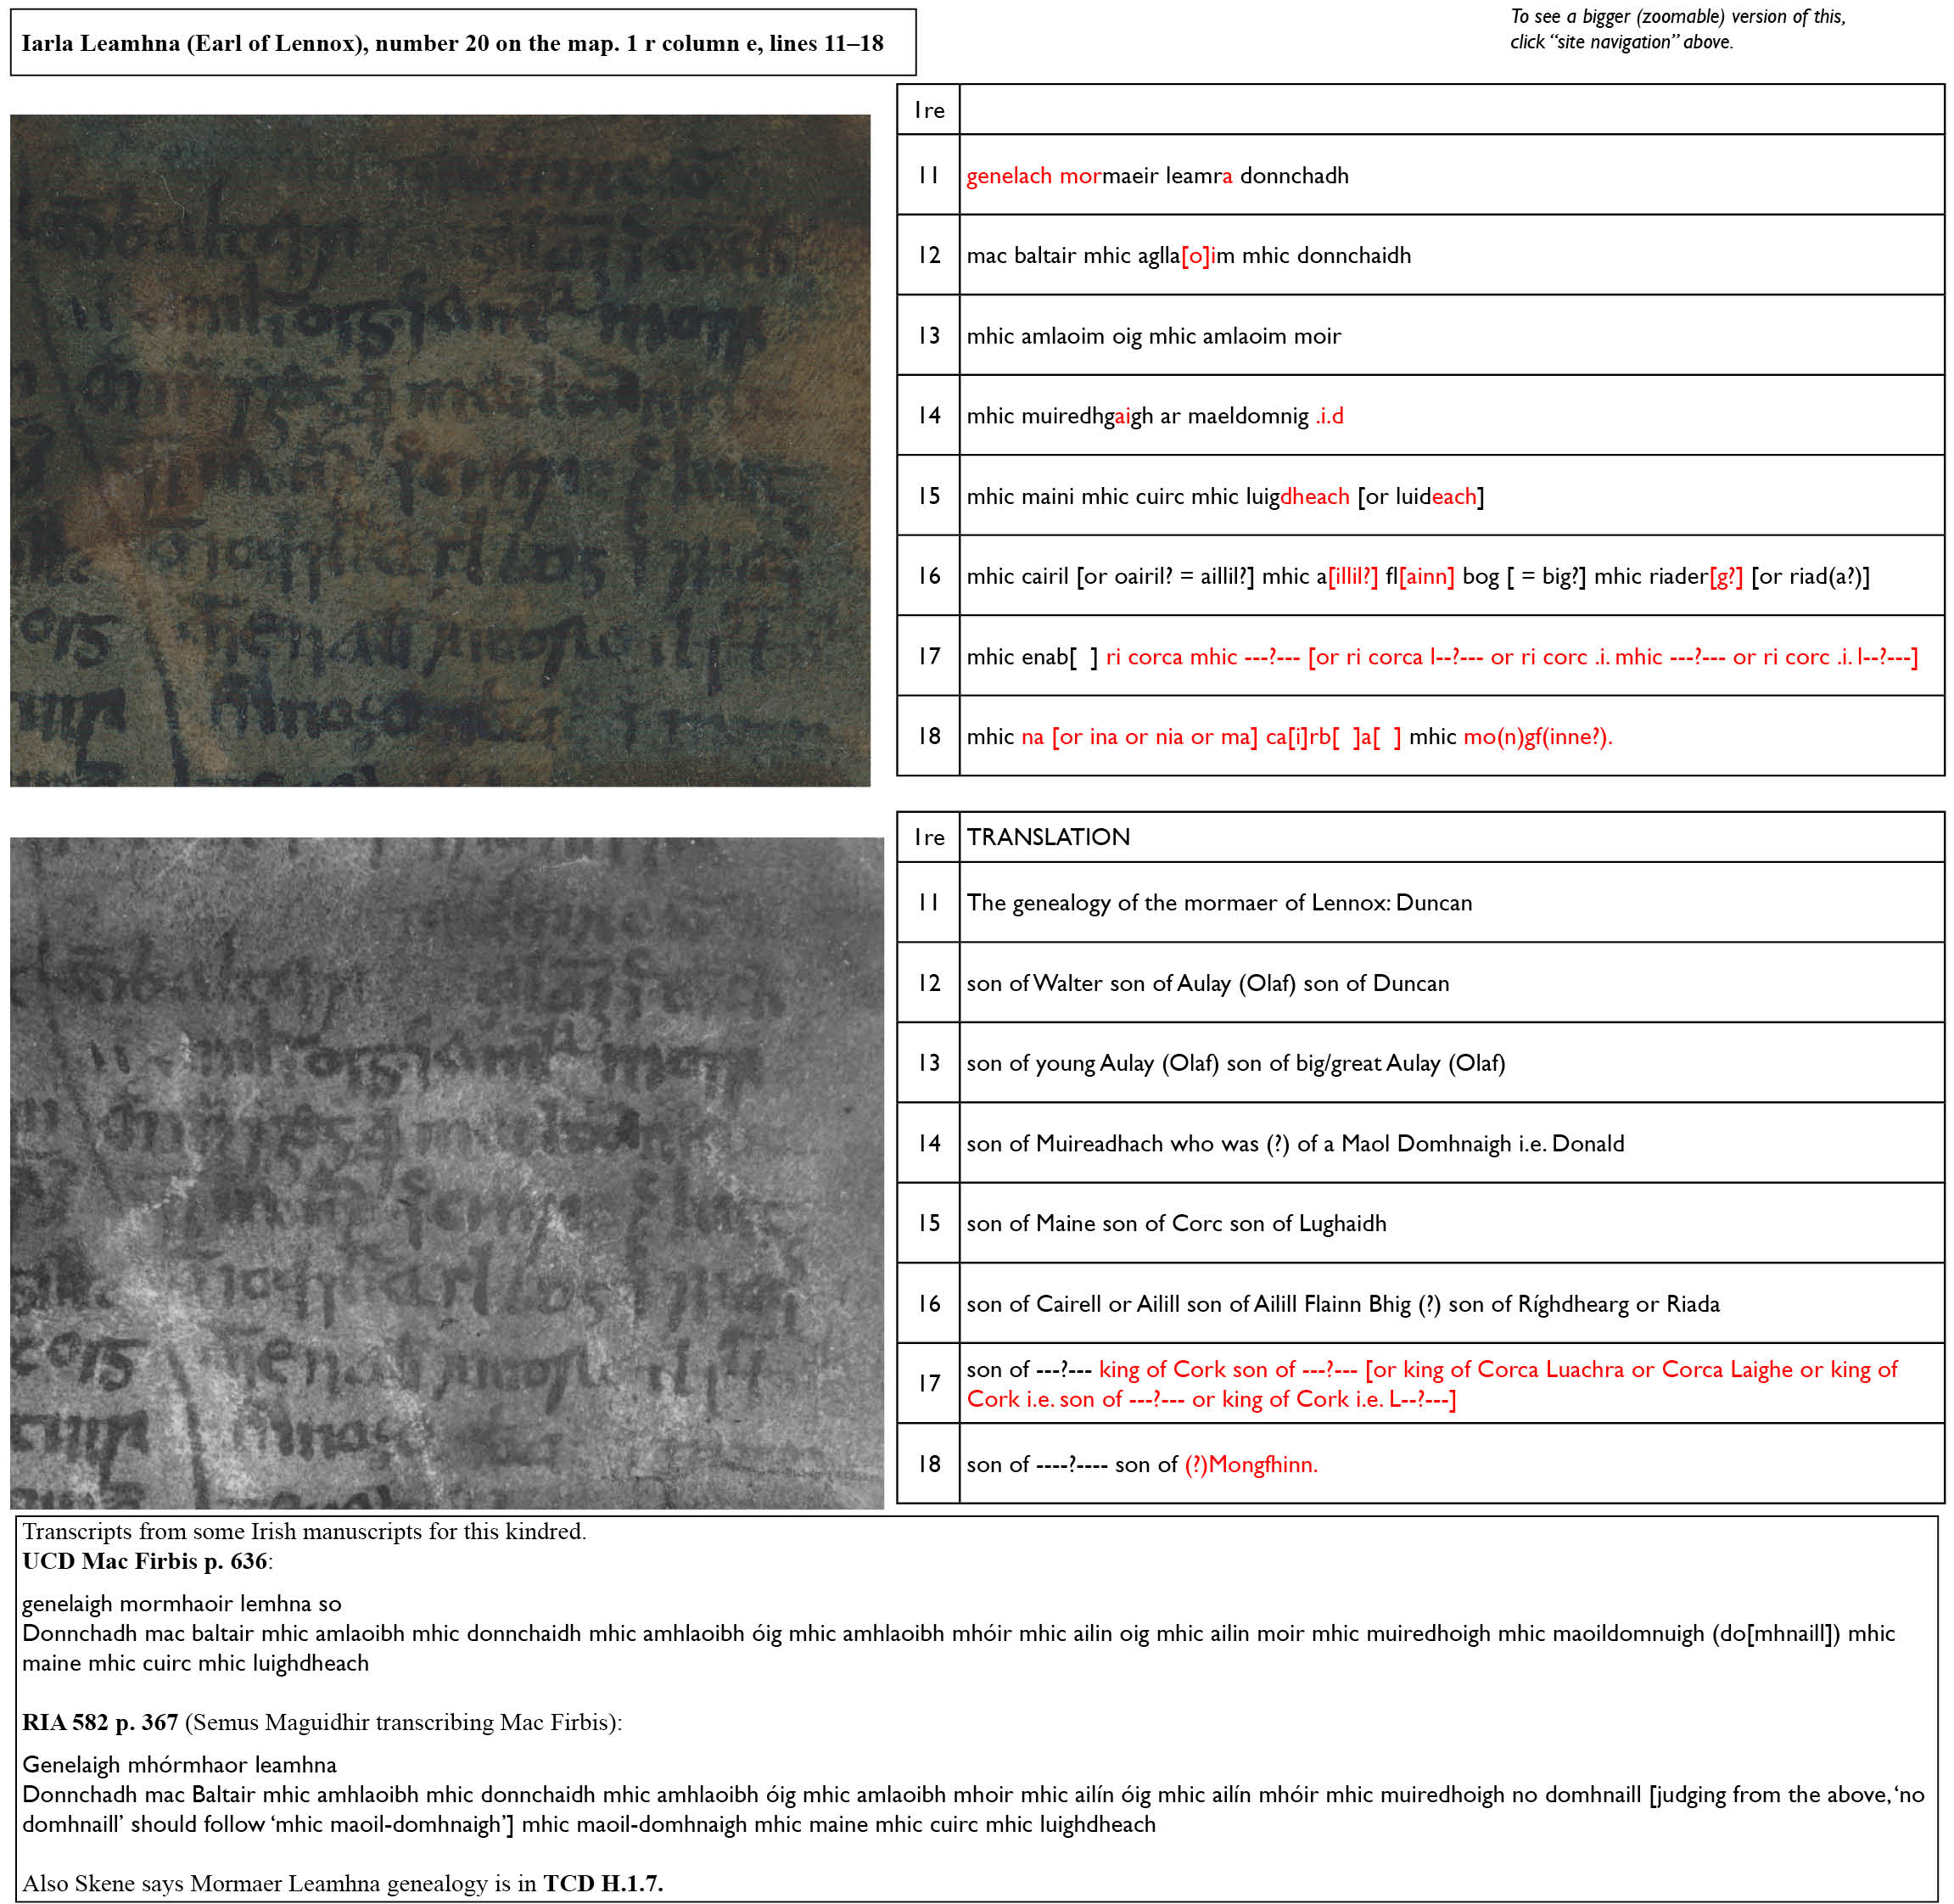 Iarla Leamhna (Earl of Lennox), number 20 on the map. 1 r column e, lines 11–18
To see a bigger (zoomable) version of this,
click “site navigation” above.
1re
11 genelach mormaeir leamra donnchadh
12 mac baltair mhic aglla[o]im mhic donnchaidh
13 mhic amlaoim oig mhic amlaoim moir
14 mhic muiredhgaigh ar maeldomnig .i.d
15 mhic maini mhic cuirc mhic luigdheach [or luideach]
16 mhic cairil [or oairil? = aillil?] mhic a[illil?] fl[ainn] bog [ = big?] mhic riader[g?] [or riad(a?)]
17 mhic enab[ ] ri corca mhic ---?--- [or ri corca l--?--- or ri corc .i. mhic ---?--- or ri corc .i. l--?---]
18 mhic na [or ina or nia or ma] ca[i]rb[ ]a[ ] mhic mo(n)gf(inne?).
1re TRANSLATION
11 The genealogy of the mormaer of Lennox: Duncan
12 son of Walter son of Aulay (Olaf) son of Duncan
13 son of young Aulay (Olaf) son of big/great Aulay (Olaf)
14 son of Muireadhach who was (?) of a Maol Domhnaigh i.e. Donald
15 son of Maine son of Corc son of Lughaidh
16 son of Cairell or Ailill son of Ailill Flainn Bhig (?) son of Ríghdhearg or Riada
17 son of ---?--- king of Cork son of ---?--- [or king of Corca Luachra or Corca Laighe or king of
Cork i.e. son of ---?--- or king of Cork i.e. L--?---]
18 son of ----?---- son of (?)Mongfhinn.
Transcripts from some Irish manuscripts for this kindred.
UCD Mac Firbis p. 636:
genelaigh mormhaoir lemhna so
Donnchadh mac baltair mhic amlaoibh mhic donnchaidh mhic amhlaoibh óig mhic amhlaoibh mhóir mhic ailin oig mhic ailin moir mhic muiredhoigh mhic maoildomnuigh (do[mhnaill]) mhic
maine mhic cuirc mhic luighdheach
RIA 582 p. 367 (Semus Maguidhir transcribing Mac Firbis):
Genelaigh mhórmhaor leamhna
Donnchadh mac Baltair mhic amhlaoibh mhic donnchaidh mhic amhlaoibh óig mhic amlaoibh mhoir mhic ailín óig mhic ailín mhóir mhic muiredhoigh no domhnaill [judging from the above, ‘no
domhnaill’ should follow ‘mhic maoil-domhnaigh’] mhic maoil-domhnaigh mhic maine mhic cuirc mhic luighdheach
Also Skene says Mormaer Leamhna genealogy is in TCD H.1.7.